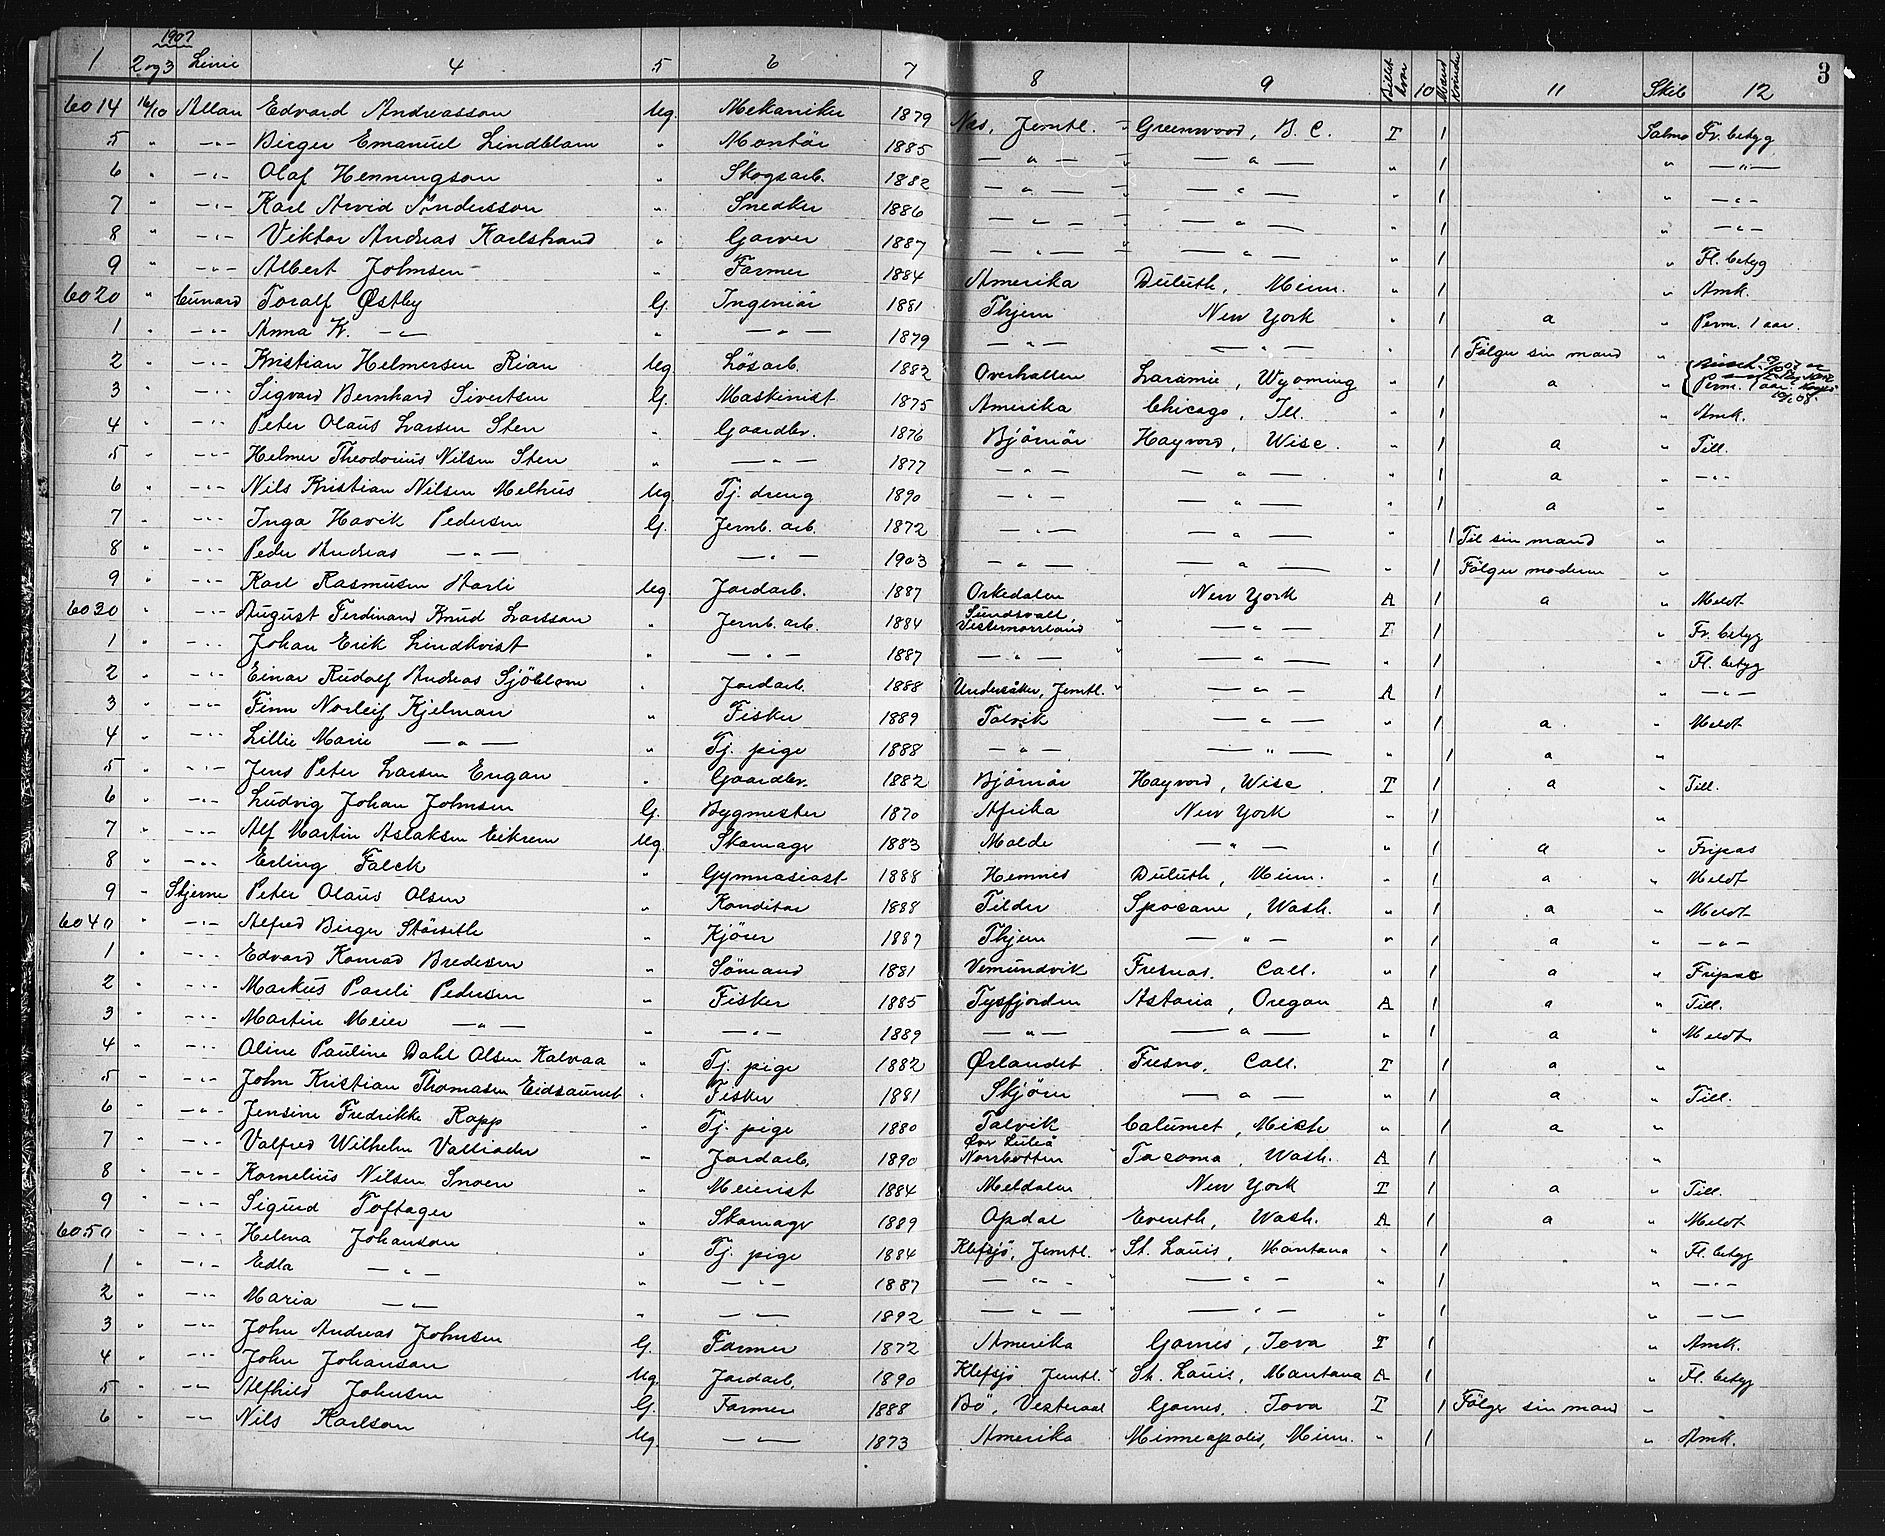 1 2 og 3 1907 Linie 4 5 6 7 8 9 Billet hvor 10 Mand Kvinder 11 Skib 12 3
6014 16/10 Allan Edvard Andreasson Ug. Mekaniker 1879 Nas, Jemtl. Greenwood, B. C. T 1 Salmo Fr. betyg
5 " —"— Birger Emanuel Lindblom " Montør 1885 —"— —"— " 1 " —"—
6 " —"— Olaf Henningson " Skogsarb. 1882 —"— —"— " 1 " —"—
7 " —"— Karl Arvid Andersson " Snedker 1886 —"— —"— " 1 " —"—
8 " —"— Viktor Andreas Karlstrand " Garver 1887 —"— —"— " 1 " Fl. betyg
9 " —"— Albert Johnsen " Farmer 1884 Amerika Duluth, Minn. " 1 " Amk.
6020 " Cunard Toralf Østby G. Ingeniør 1881 Thjem New York " 1 a " Perm. 1 aar.
1 " —"— Anna K. —"— " —"— 1879 —"— —"— " 1 Følger sin mand "
2 " —"— Kristian Helmersen Rian Ug. Løsarb. 1882 Overhallen Laramie, Wyoming " 1 a " Perm. 1 aar.
3 " —"— Sigvard Bernhard Sivertsen G. Maskinist 1875 Amerika Chicago, Ill. " 1 " Amk.
4 " —"— Peter Olaus Larsen Sten " Gaardbr. 1876 Bjørnør Hayvord, Wisc. " 1 a " Till.
5 " —"— Helmer Theodorius Nilsen Sten " —"— 1877 —"— —"— " 1 a " —"—
6 " —"— Nils Kristian Nilsen Melhus Ug. Tj. dreng 1890 —"— —"— " 1 a "
7 " —"— Inga Havik Pedersen G. Jernb. arb. 1872 —"— —"— " 1 Til sin mand "
8 " —"— Peder Andreas —"— —"— 1903 —"— —"— " 1 Følger moderen "
9 " —"— Karl Rasmusen Harli Ug. Jordarb. 1887 Orkedalen New York A 1 a " Meldt
6030 " —"— August Ferdinand Knud Larsson " Jernb. arb. 1884 Sundsvall, Vesternorrland " —"— T 1 " Fr. betyg
1 " —"— Johan Erik Lindkvist " —"— 1887 —"— " —"— " 1 " Fl. betyg
2 " —"— Einar Rudolf Andreas Sjöblom " Jordarb. 1888 Undersåker, Jemtl. " —"— A 1 " —"—
3 " —"— Finn Norleif Kjelman " Fisker 1889 Talvik —"— " 1 a " Meldt
4 " —"— Lillie Marie —"— " Tj. pige 1888 —"— —"— " 1 a "
5 " —"— Jens Peter Larsen Engan " Gaardbr. 1882 Bjørnør Hayvord, Wisc. T 1 a " Till.
6 " —"— Ludvig Johan Johnsen G. Bygmester 1870 Afrika New York " 1 "
7 " —"— Alf Martin Aslaksen Eikrem Ug. Skomager 1883 Molde —"— " 1 a " Fripas
8 " —"— Erling Falck " Gymnasiast 1888 Hemnes Duluth, Minn. " 1 a " Meldt
9 " Stjerne Peter Olaus Olsen " Konditor 1888 Tilder Spocane, Wash. " 1 a " Meldt
6040 " —"— Alfred Birger Størseth " Kjører 1887 Thjem —"— " 1 a " —"—
1 " —"— Edvard Konrad Bredesen " Sømand 1881 Vemundvik Fresnas. Call. " 1 a " Fripas
2 " —"— Markus Pareli Pedersen " Fisker 1885 Tysfjorden Astoria, Oregon A 1 a " Till.
3 " —"— Martin Meier —"— " —"— 1889 —"— —"— " 1 a " Meldt
4 " —"— Aline Pauline Dahl Olsen Kalvaa " Tj. pige 1882 Ørlandet Fresno, Call. T 1 a "
5 " —"— John Kristian Thomasen Eidsaunet " Fisker 1881 Skjørn —"— " 1 a " Till.
6 " —"— Jensine Fredrikke Rapp " Tj. pige 1880 Talvik Calumet, Mich " 1 a "
7 " —"— Valfred Wilhelm Vallioder " Jordarb. 1890 Över Luleå Norrbotten " Tacoma, Wash. A 1 "
8 " —"— Kornelius Nilsen Snoen " Meierist 1884 Meldalen New York T 1 a " Till.
9 " —"— Sigurd Toftager " Skomager 1889 OpdalEvereth, Wash. A 1 a " Meldt
6050 " —"— Helena Johanson " Tj. pige 1884 Klefsjø, Jemtl. " St. Louis, Montana " 1 " Fl. betyg
1 " —"— Edla —"— " —"— 1887 —"— " —"— " 1 " —"—
2 " —"— Maria —"— " —"— 1892 —"— —"— " 1 " —"—
3 " —"— John Andreas Johnsen G. Farmer 1872 Amerika Garnes, Iova T 1 " Amk.
4 " —"— John Johanson Ug. Jordarb. 1890 Klefsjø Jemtl. " St. Louis, Montana A 1 " Fl. betyg
5 " —"— Alfhild Johnsen G. Farmer 1888 Bø, Vesteraal Garnes, Iova T 1 Følger sin mand "
6 " —"— Nils Karlson Ug. —"— 1873 Amerika Minneapolis, Minn. " 1 " Amk.